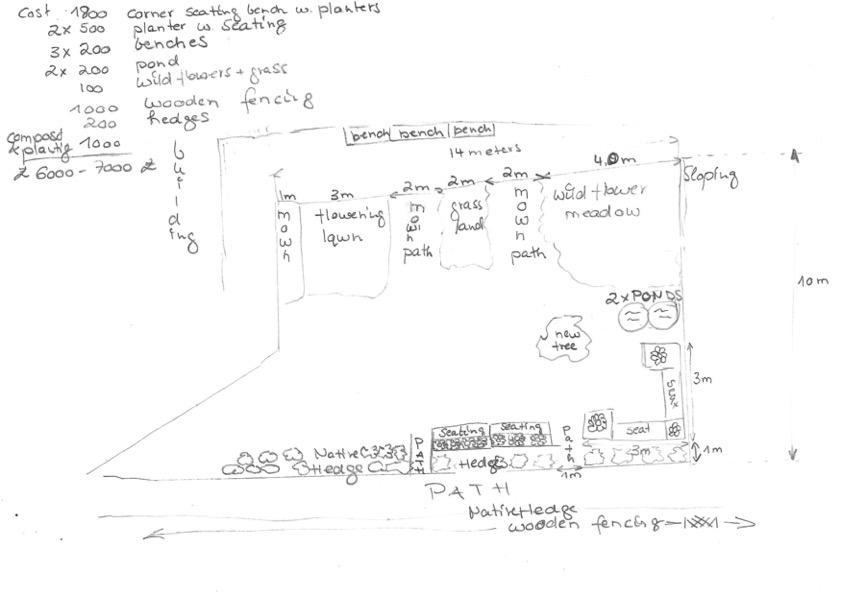 Cost 1800 corner seating bench w. planters
2x 500 planter w. seating
3x 200 benches
2x 200 pond
100 wild flowers + grass
1000 wooden fencing
200 hedges
compost & planting 1000
£ 6000 - 7000 £
building
bench bench bench
14 meters
4.0m
Sloping
1m 3m 2m 2m 2m
mown
flowering lawn
mown path
grass land
mown path
wild flower meadow
10m
2x PONDS
new tree
3m
seat
seating seating
Path
seat
Native
Hedge
PATH
Hedge
1m
3m
1m
PATH
Native Hedge
wooden fencing